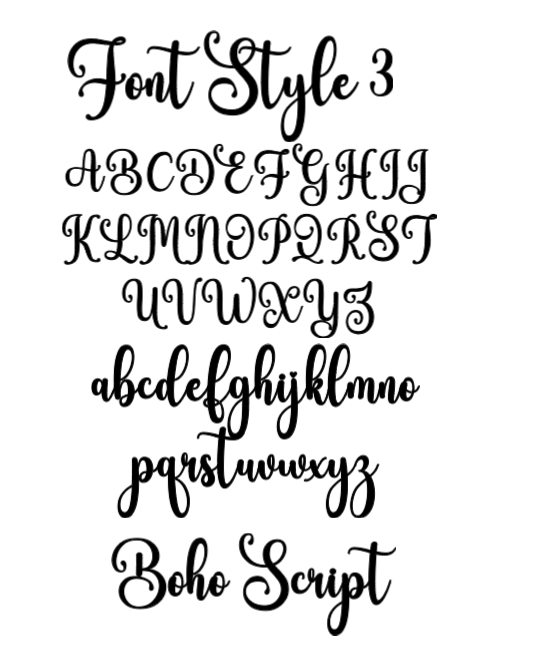 Font Style 3
ABCDEFGHIJ
KLMNOPQRST
UVWXYZ
abcdefghijklmno
pqrstuvwxyz
Boho Script